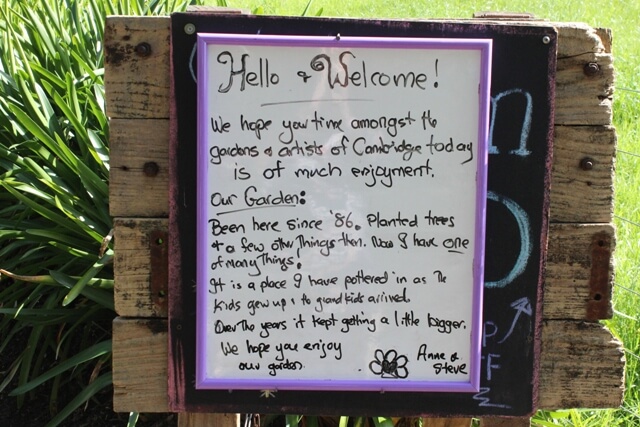 Hello & Welcome!
We hope you time amongst the
gardens & artists of Cambridge today
is of much enjoyment.
Our Garden:
Been here since '86. Planted trees
& a few other things then. Now I have one
of many things!
It is a place I have pottered in as the
kids grew up & to grandkids arrived.
Over The years it kept getting a little bigger.
We hope you enjoy
our garden.
Anne &
Steve